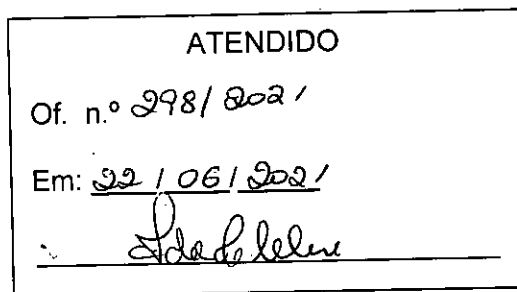 ATENDIDO
Of. n.º 298/2021
Em: 22/06/2021